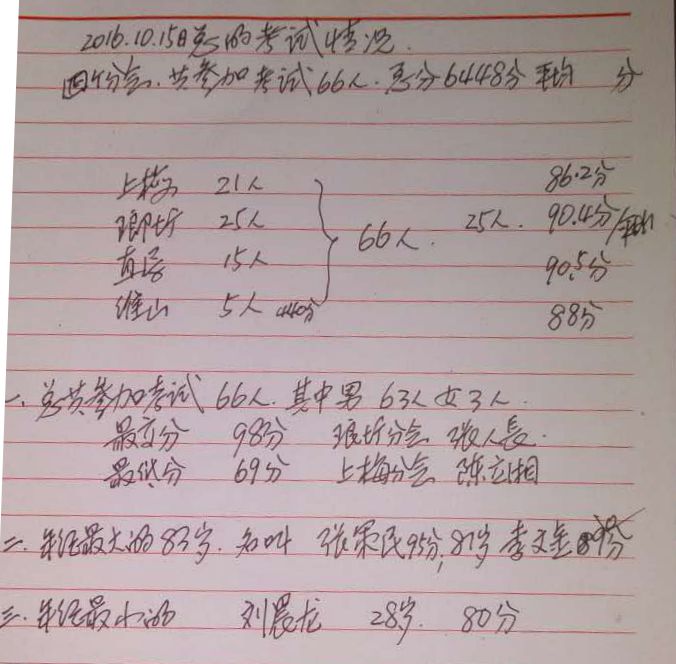 2016.10.15日总的考试情况.
四个分会.共参加考试66人.总分6448分 平均 分
上梅 21人 86.2分
琅圻 25人 66人. 25人. 90.4分/
直 15人 90.5分
维山 5人 440分 88分
一、总共参加考试 66人.其中男 63人女3人.
最高分 98分 琅圻分会 张人長.
最低分 69分 上梅分会 陈立湘
二.年纪最大的83岁.名叫 张 民95分,81岁 李文 分
三.年纪最小的 刘晨龙 28岁. 80分